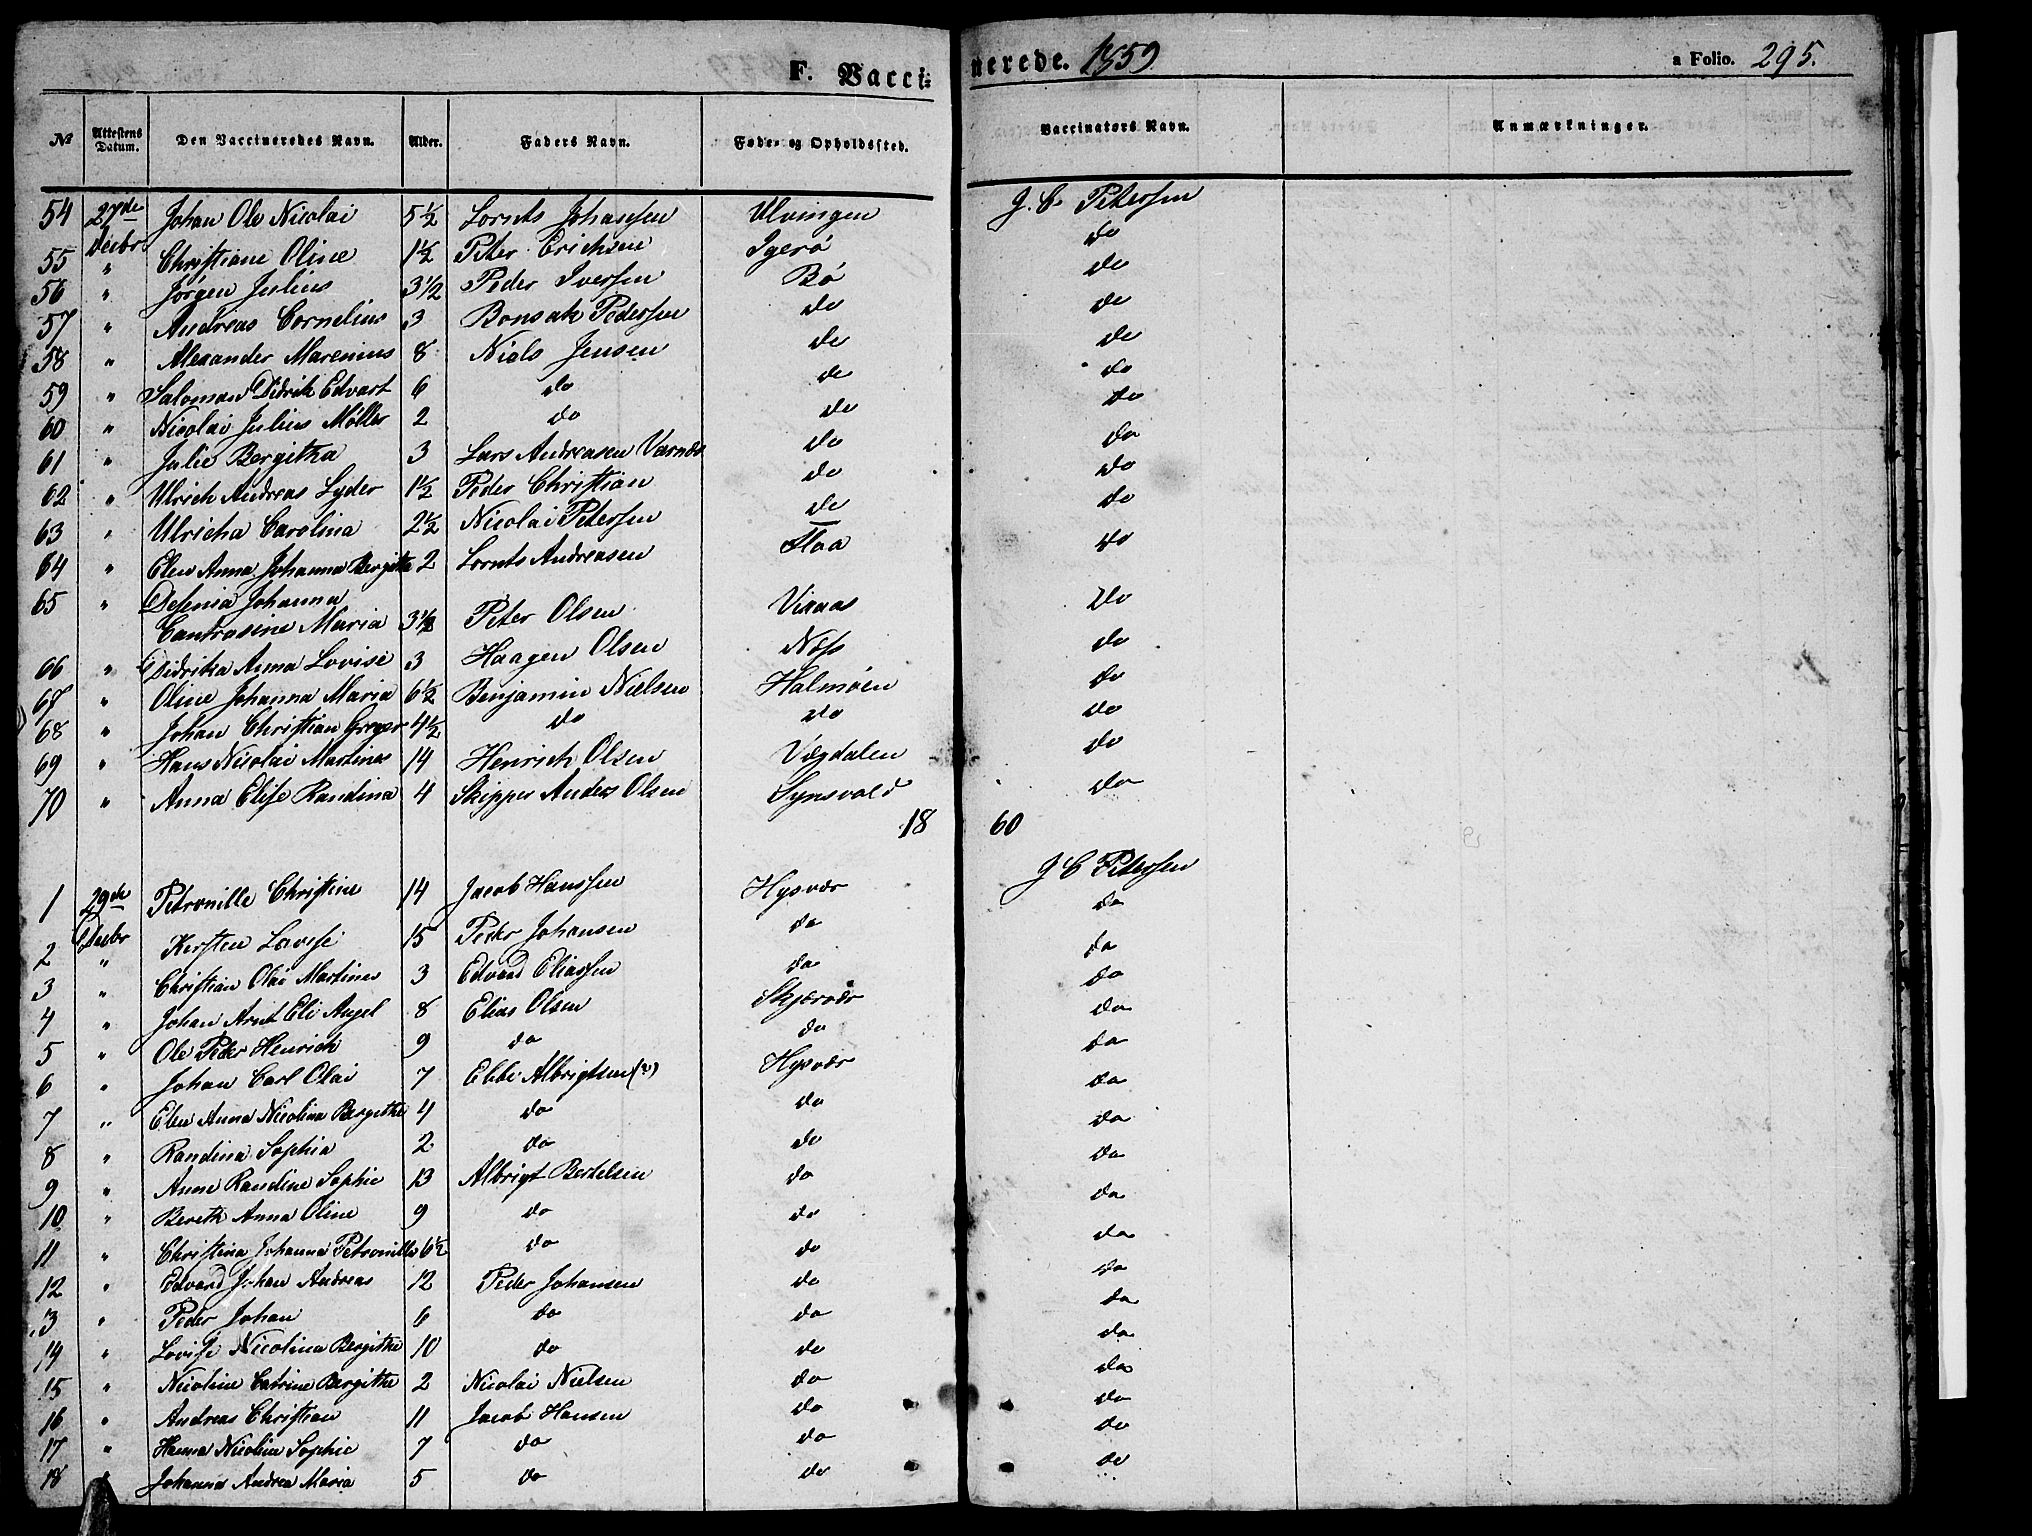 F. Vacci=nerede. 1859. a Folio. 295.
№ Attestens Datum. Den Vaccineredes Navn. Alder. Faders Navn. Føde- og Opholdssted. Vaccinators Navn. Anmærkninger.
54 27de Decbr Johan Ole Nicolai 5½ Lornts Johansen Ulvingen J. C. Petersen
55 " Christiane Oline 1½ Peter Erichsen Igerø do
56 " Jørgen Julius 3½ Peder Iversen Bø do
57 " Andreas Cornelius 3 Bonsak Pedersen do do
58 " Alexander Marenius 8 Niels Jensen do do
59 " Salomon Didrik Edvart 6 do do do
60 " Nicolai Julius Møller 2 do do do
61 " Julie Bergitha 3 Lars Andreasen Varnæs do do
62 " Ulrich Andreas Lyder 1½ Peder Christian do do
63 " Ulricha Carolina 2½ Nicolai Petersen do do
64 " Elen Anna Johanna Bergitha 2 Lornts Andreasen Floa do
65 " Desenia Johanna
Cantrasine Maria 3½ Peter Olsen Vixaas Do
66 " Didrika Anna Lovise 3 Haagen Olsen Næss do
67 " Oline Johanna Maria 6½ Benjamin Nielsen Halmøen do
68 " Johan Christian Greger 4½ do do do
69 " Hans Nicolai Martinus 14 Henrich Olsen Vægdalen do
70 " Anna Elise Randina 4 Skipper Anders Olsen Synsvold do
1860
1 29de Decbr Petronille Christine 14 Jacob Hanssen Hysvær J C Petersen
2 " Kirsten Lovise 15 Peder Johansen do do
3 " Christian Olai Martines 3 Edvard Eliassen do do
4 " Johan Arnt Eli Angel 8 Elias Olsen Skjærvær do
5 " Ole Peder Henrich 9 do do do
6 " Johan Carl Olai 7 Ebbe Albrigtsen (?) Hysvær do
7 " Elen Anna Nicolina Bergithe 4 do do do
8 " Randina Sophia 2 do do do
9 " Anne Randine Sophie 13 Albrigt Bertelsen do do
10 " Bereth Anna Oline 9 do do do
11 " Christina Johanna Petronille 6½ do do do
12 " Edvard Johan Andreas 12 Peder Johansen do do
13 " Peder Johan 6 do do do
14 " Lovise Nicolina Bergitha 10 do do do
15 " Nicoline Catrine Bergitha 2 Nicolai Nielsen do do
16 " Andreas Christian 11 Jacob Hansen do do
17 " Hanna Nicolina Sophie 7 do do do
18 " Johanna Andrea Maria 5 do do do